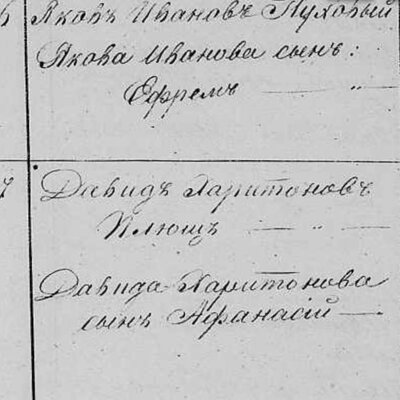 Яковъ Ивановъ Пуховый
Якова Иванова сынъ:
Ефремъ — „ —
7 Давидъ Харитоновъ
Плющъ — „ —
Давида Харитонова
сынъ Афанасій —